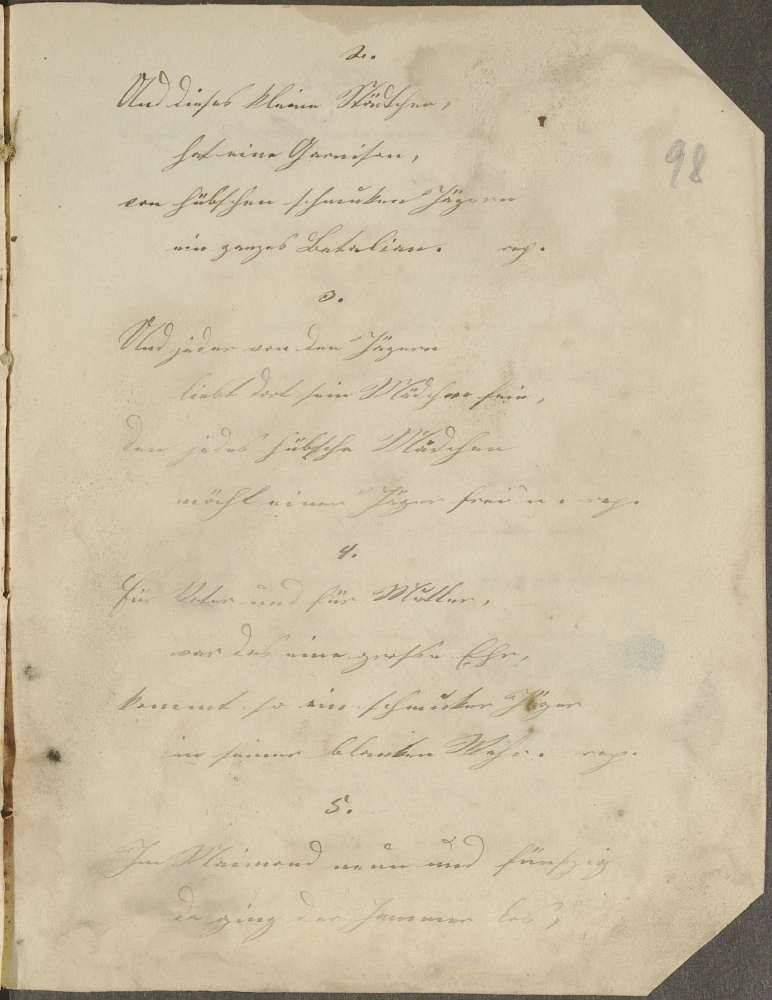 2.
Und dieses kleine Städtchen,
hat eine Garnison,
von hübschen schmuken Jägern
ein ganzes Batalion. rep.
98
3.
Und jeder von den Jägern
liebt dort sein Mädchen fein,
den jedes hübsche Mädchen
möcht einen Jäger frei'n. rep.
4.
für Vater und für Mutter,
war das eine große Ehr,
kommt so ein schmuker Jäger
in seiner blanken Wehr. rep.
5.
Im Maimond neun und fünfzig
da ging der Jammer los,